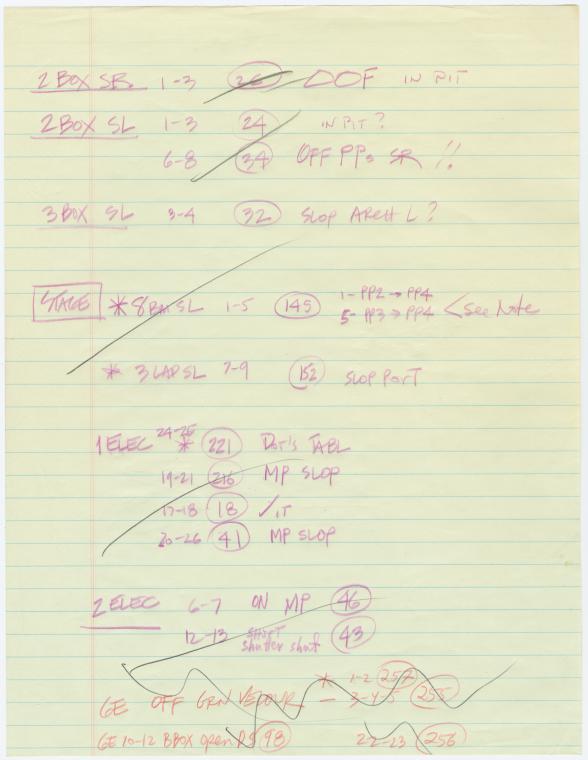 2 BOX SR 1-3 26 OOF IN PIT
2 BOX SL 1-3 24 IN PIT?
6-8 34 OFF PPs SR !!
3 BOX SL 3-4 32 SLOP ARCH L?
STAGE * 8 SL 1-5 145 1- PP2 → PP4
5- PP3 → PP4 < See Note
* 3 LAD SL 7-9 152 SLOP PORT
1 ELEC 24-25 * 221 Dot's TABL
19-21 216 MP SLOP
17-18 18 ✓ IT
20-26 41 MP SLOP
2 ELEC 6-7 ON MP 46
12-13 SHUT 43
shutter shut
6E OFF GRN VELOUR * 1-2 257
- 3-4-5 255
6E 10-12 BBOX open RS 98 22-23 256